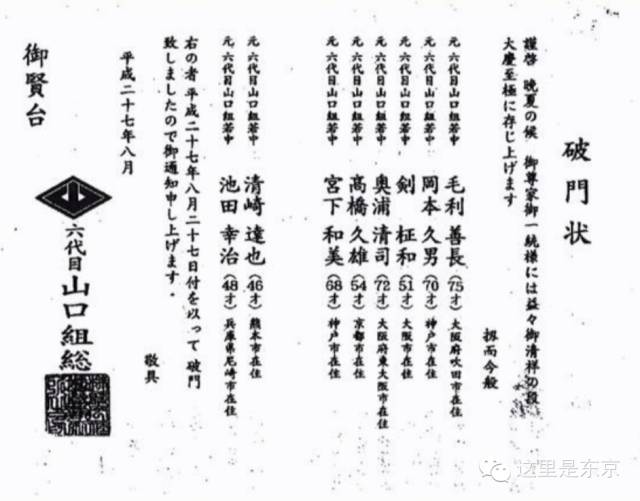 破門状
謹啓 晩夏の候 御尊家御一統様には益々御清祥の段
大慶至極に存じ上げます
扨而今般
元 六代目山口組若中 毛利 善長(75才)大阪府吹田市在住
元 六代目山口組若中 岡本 久男(70才)神戸市在住
元 六代目山口組若中 剣 柾和(51才)大阪市在住
元 六代目山口組若中 奥浦 清司(72才)大阪府東大阪市在住
元 六代目山口組若中 髙橋 久雄(54才)京都市在住
元 六代目山口組若中 宮下 和美(68才)神戸市在住
元 六代目山口組若中 清崎 達也(46才)熊本市在住
元 六代目山口組若中 池田 幸治(48才)兵庫県尼崎市在住
右の者 平成二十七年八月二十七日付を以って 破門
致しましたので御通知申し上げます。
敬具
平成二十七年八月
御賢台
六代目 山口組総
这里是东京